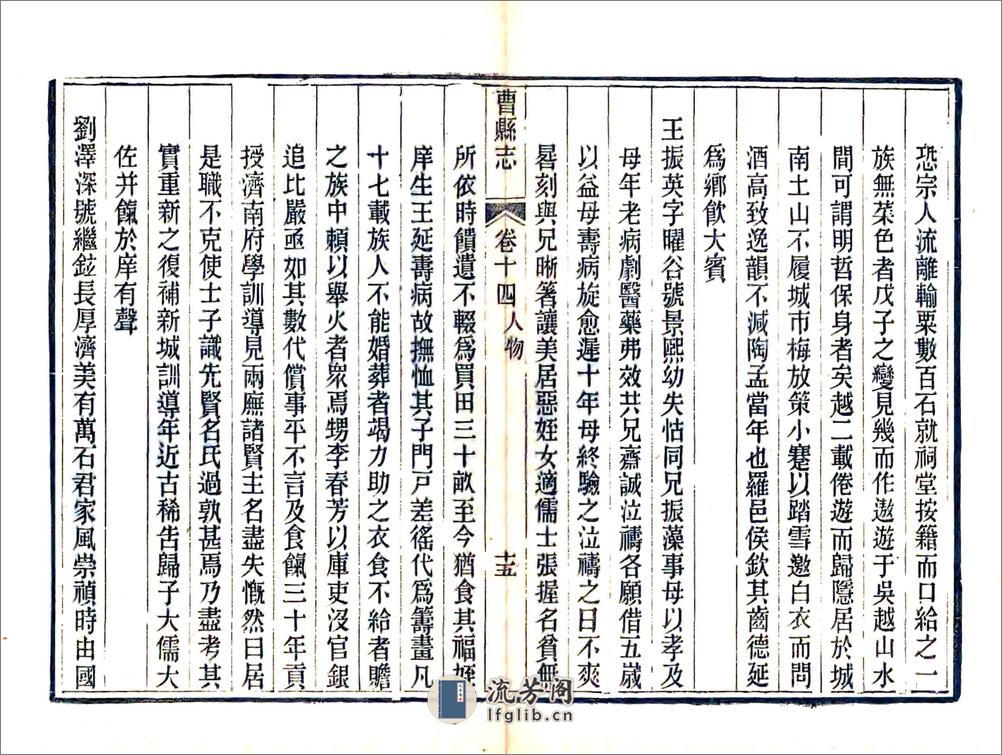 恐宗人流離輸粟數百石就祠堂按籍而口給之一
族無菜色者戊子之變見幾而作遨遊于吳越山水
間可謂明哲保身者矣越二載倦遊而歸隱居於城
南土山不履城市梅放策小蹇以踏雪邀白衣而問
酒高致逸韻不減陶孟當年也羅邑侯欽其齒德延
為鄉飲大賓
王振英字曜谷號景熙幼失怙同兄振藻事母以孝及
母年老病劇醫藥弗效共兄齋誠泣禱各願借五歲
以益母壽病旋愈遲十年母終驗之泣禱之日不爽
晷刻與兄晰箸讓美居惡姪女適儒士張握名貧無
曹縣志
卷十四人物
十五
所依時饋遺不輟為買田三十畝至今猶食其福姪
庠生王延壽病故撫恤其子門戶差徭代為籌畫凡
十七載族人不能婚葬者竭力助之衣食不給者贍
之族中賴以舉火者眾焉甥李春芳以庫吏沒官銀
追比嚴亟如其數代償事平不言及食餼三十年貢
授濟南府學訓導見兩廡諸賢主名盡失慨然曰居
是職不克使士子識先賢名氏過孰甚焉乃盡考其
實重新之復補新城訓導年近古稀告歸子大儒大
佐并餼於庠有聲
劉澤深號繼鉉長厚濟美有萬石君家風崇禎時由國
流芳阁
lfglib.cn